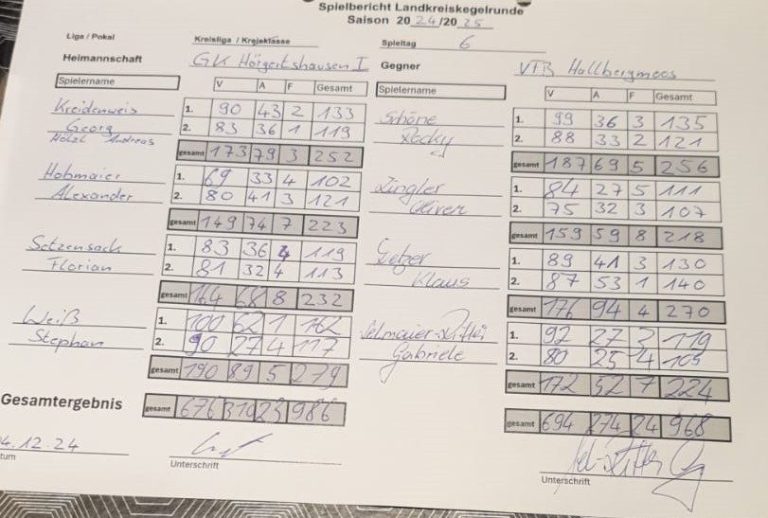 Spielbericht Landkreiskegelrunde
Saison 2024/2025
Liga / Pokal Kreisliga / Kreisklasse Spieltag 6
Heimmannschaft GK Hörgertshausen I Gegner VfB Hallbergmoos
Spielername V A F Gesamt Spielername V A F Gesamt
Kreidenweis 1. 90 43 2 133 Schöne 1. 99 36 3 135
Georg 2. 83 36 1 119 Rocky 2. 88 33 2 121
Hölzl Andreas
gesamt 173 79 3 252 gesamt 187 69 5 256
Hobmaier 1. 69 33 4 102 Zingler 1. 84 27 5 111
Alexander 2. 80 41 3 121 Oliver 2. 75 32 3 107
gesamt 149 74 7 223 gesamt 159 59 8 218
Setzensack 1. 83 36 4 119 1. 89 41 3 130
Florian 2. 81 32 4 113 Klaus 2. 87 53 1 140
gesamt 164 68 8 232 gesamt 176 94 4 270
Weiß 1. 100 62 1 162 1. 92 27 3 119
Stephan 2. 90 27 4 117 Gabriele 2. 80 25 4 105
gesamt 190 89 5 279 gesamt 172 52 7 224
Gesamtergebnis gesamt 676 310 23 986 gesamt 694 274 24 968
4.12.24
tum Unterschrift Unterschrift